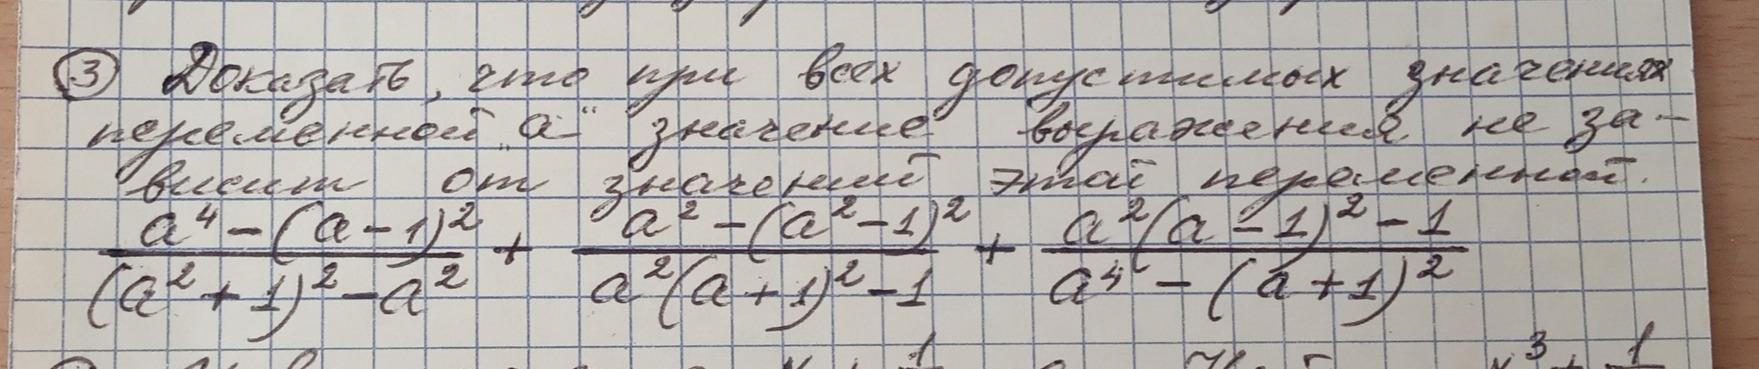 ③ Доказать, что при всех допустимых значениях
переменной „a“ значение выражения не за-
висит от значений этой переменной.
(a⁴ - (a - 1)²) / ((a² + 1)² - a²) + (a² - (a² - 1)²) / (a²(a + 1)² - 1) + (a²(a - 1)² - 1) / (a⁴ - (a + 1)²)